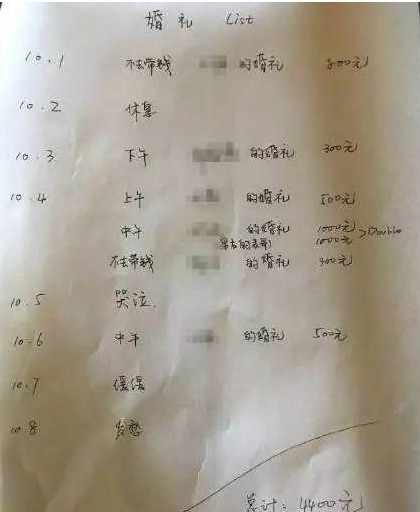 婚礼 List
10.1 不去带钱 的婚礼 800元
10.2 休息
10.3 下午 的婚礼 300元
10.4 上午 的婚礼 500元
中午 的婚礼 1000元 >Double
男友的表哥) 1000元
不去带钱 的婚礼 300元
10.5 哭泣.
10.6 中午 的婚礼 500元
10.7 缓缓
10.8
总计: 4400元